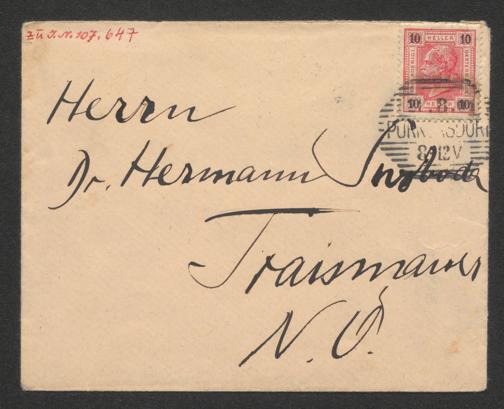 Zu I.N. 107.647
10 HELLER 10
10 HELLER 10
PURKERSDORF
8 12 V
Herrn
Dr. Hermann Swoboda
Traismauer
N. Ö.